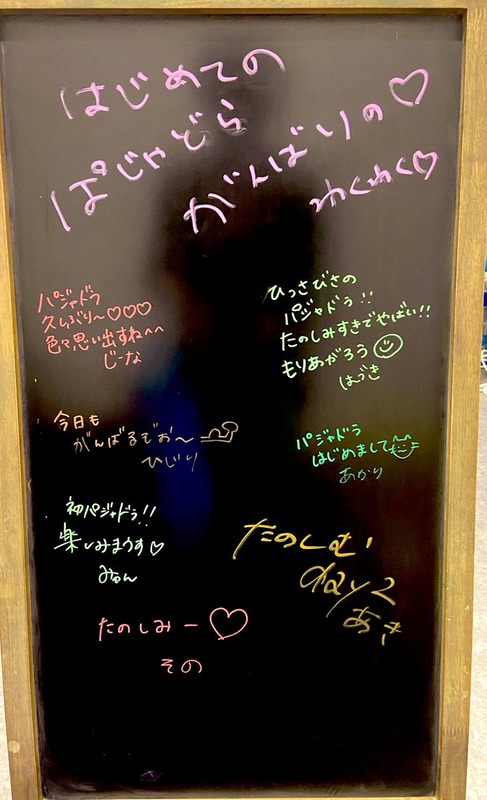 はじめての
ぱじゃどら
がんばりの♡
わくわく♡
パジャドラ
久しぶり〜♡♡♡
色々思い出すね^^
じーな
ひっさびさの
パジャドラ!!
たのしみすぎでやばい!!
もりあがろう
はづき
今日も
がんばるぞお〜
ひじり
パジャドラ
はじめまして
あかり
初パジャドラ!!
楽しみまうす♡
みるん
たのしむい
day2
あき
たのしみー♡
その